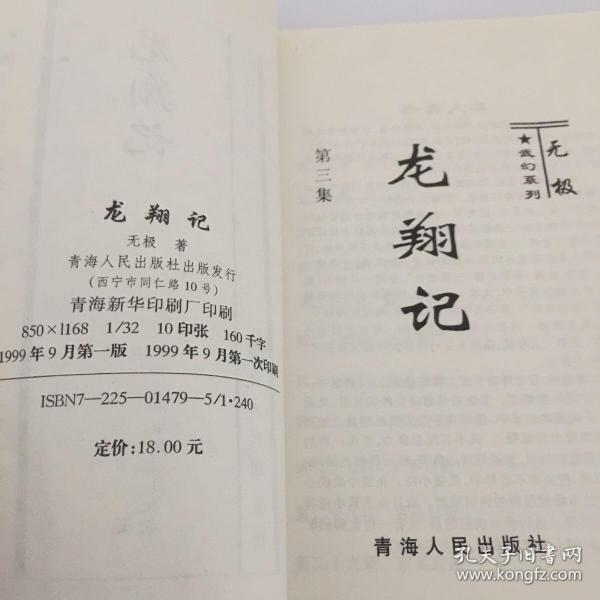 龙翔记
无极 著
青海人民出版社出版发行
(西宁市同仁路10号)
青海新华印刷厂印刷
850×1168 1/32 10印张 160千字
1999年9月第一版 1999年9月第一次印刷
ISBN7—225—01479—5/1·240
定价:18.00元
无极
★武幻系列
龙翔记
第三集
青海人民出版社
孔夫子旧书网
www.kongfz.com